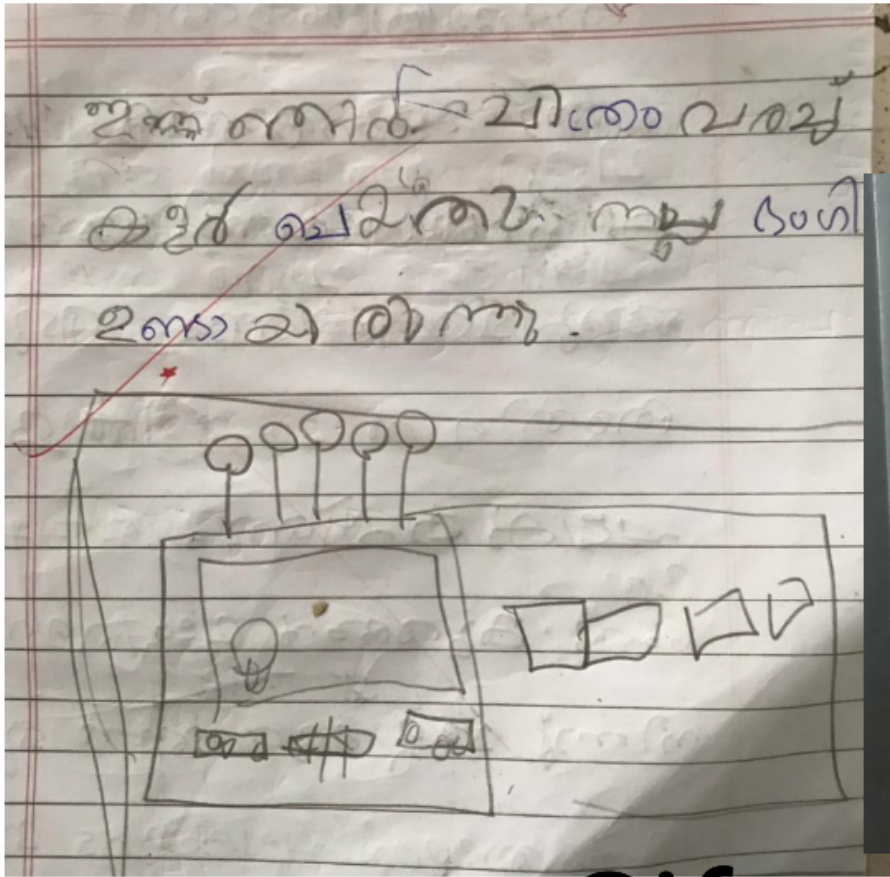 ഇന്ന് ഞാൻ ചിത്രം വരച്ച്
കളർ ചെയ്തു. നല്ല ഭംഗി
ഉണ്ടായിരുന്നു.